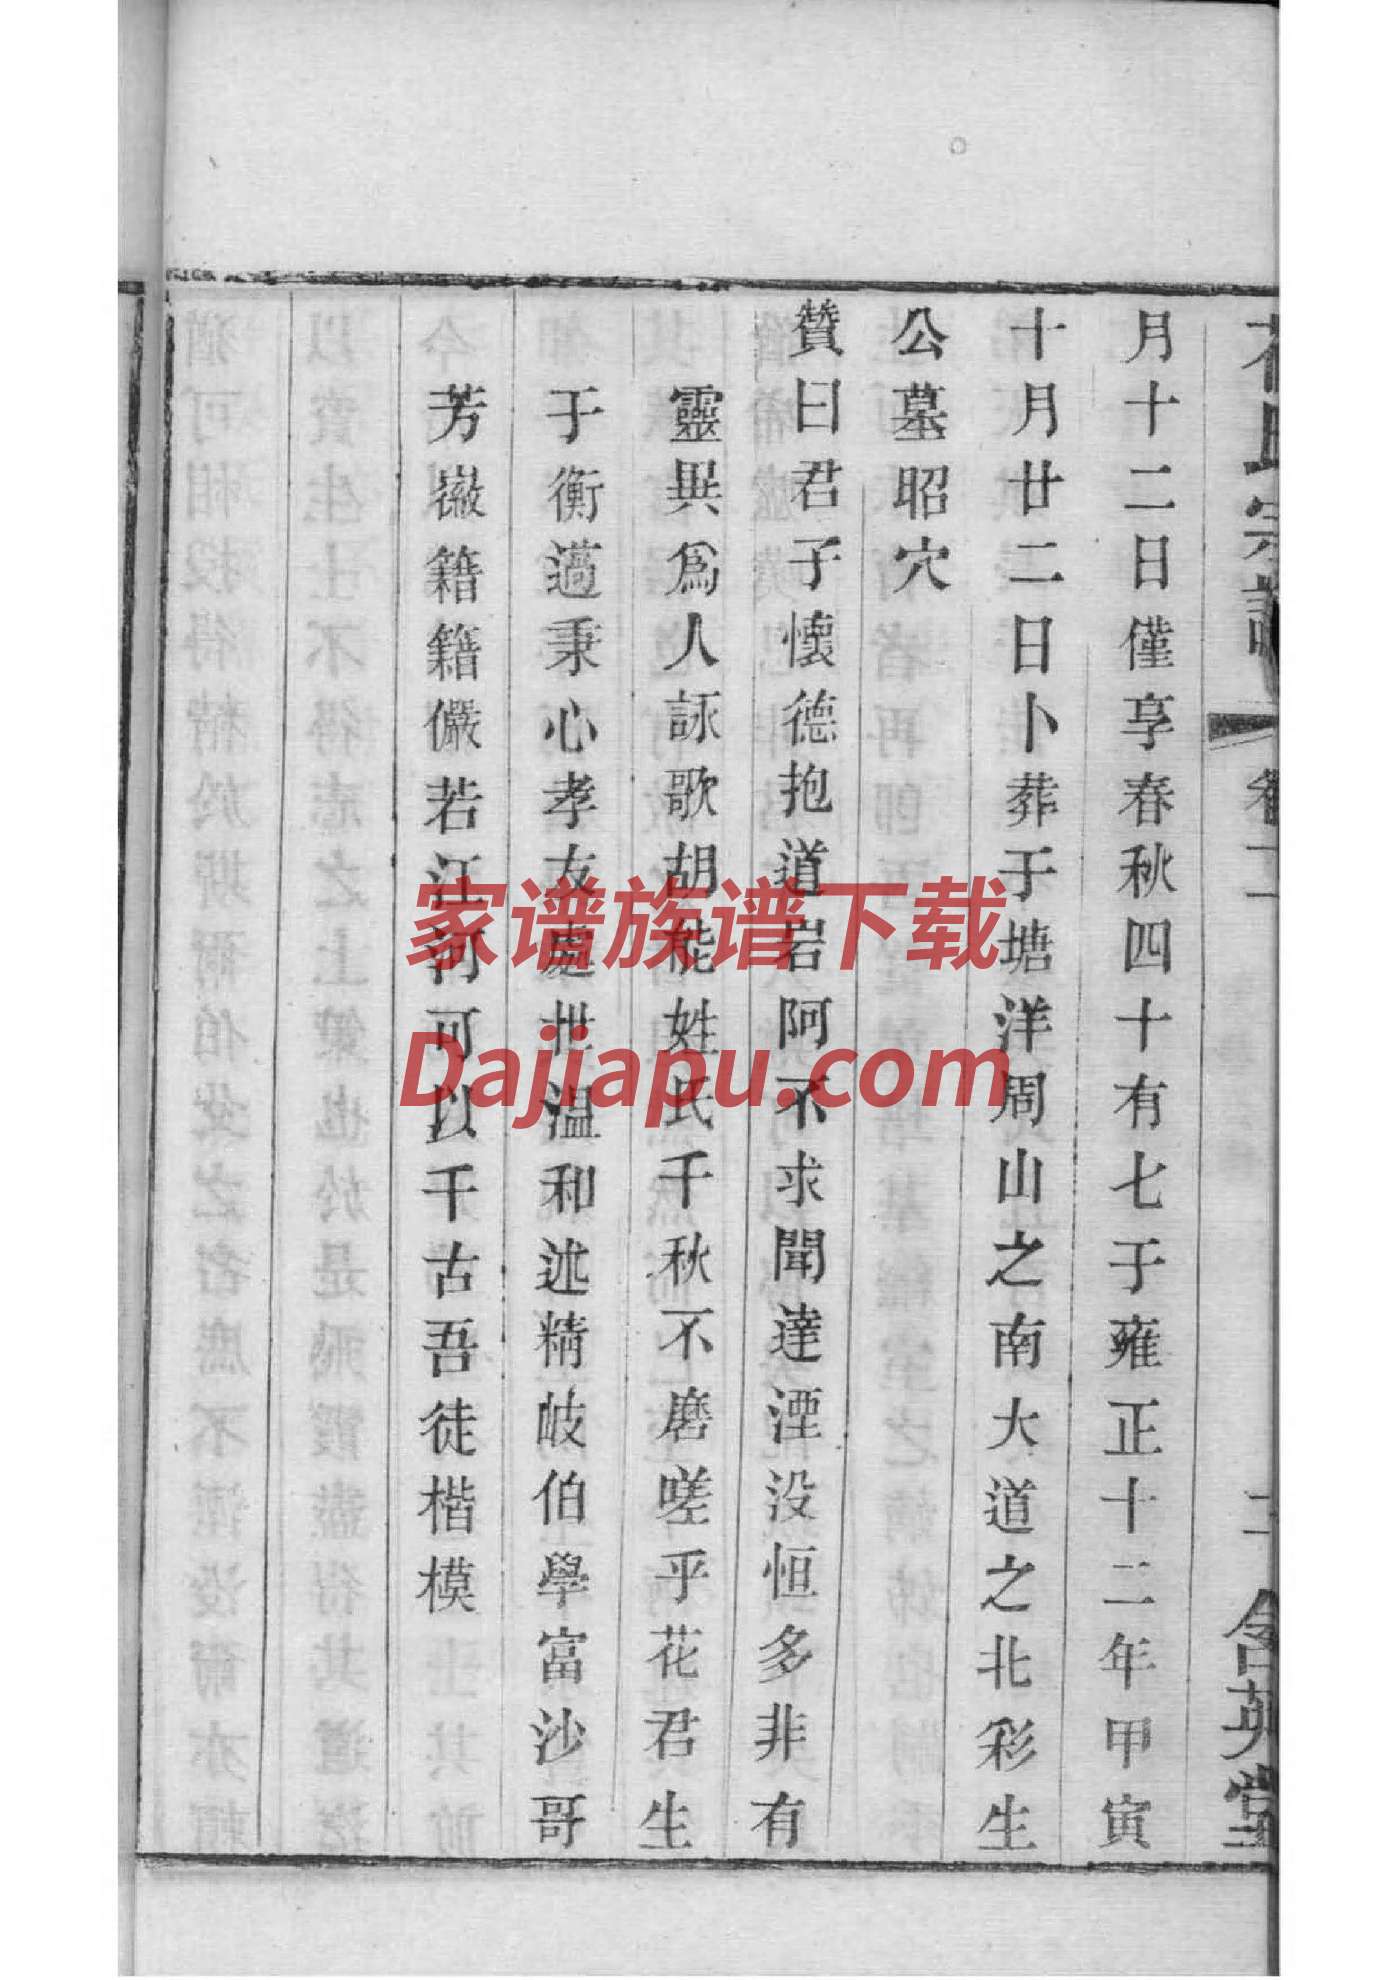 花氏宗譜 卷二 二 含英堂
月十二日僅享春秋四十有七于雍正十二年甲寅
十月廿二日卜葬于塘洋周山之南大道之北彩生
公墓昭穴
贊曰君子懷德抱道岩阿不求聞達湮没恒多非有
靈異爲人詠歌胡能姓氏千秋不磨嗟乎花君生
于衡邁秉心孝友處世温和述精岐伯學富沙哥
芳徽籍籍儼若江河可以千古吾徒楷模
家谱族谱下载
Dajiapu.com